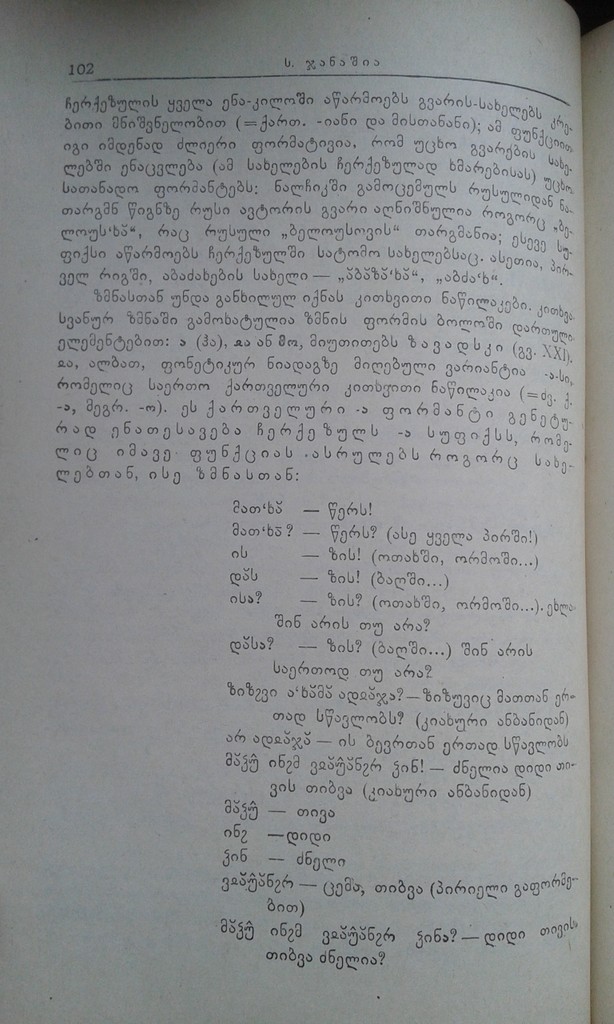 102
ს. ჯანაშია
ჩერქეზულის ყველა ენა-კილოში აწარმოებს გვარის-სახელებს კრე-
ბითი მნიშვნელობით (=ქართ. -იანი და მისთანანი); ამ ფუნქციით
იგი იმდენად ძლიერი ფორმატივია, რომ უცხო გვარების სახე-
ლებში ენაცვლება (ამ სახელების ჩერქეზულად ხმარებისას) უცხო
სათანადო ფორმანტებს: ნალჩიკში გამოცემულს რუსულიდან ნა-
თარგმნ წიგნზე რუსი ავტორის გვარი აღნიშნულია როგორც „ბე-
ლოუს'ხა̆“, რაც რუსული „ბელოუსოვის“ თარგმანია; ესევე სუ-
ფიქსი აწარმოებს ჩერქეზულში სატომო სახელებსაც. ასეთია, პირ-
ველ რიგში, აბაძახების სახელი —
ზმნასთან უნდა განხილულ იქნას კითხვითი ნაწილაკები. კითხვა
სვანურ ზმნაში გამოხატულია ზმნის ფორმის ბოლოში დართული
ელემენტებით: ა (ჰა), ან მო, მიუთითებს ზავადსკი (გვ. XXI).
ალბათ, ფონეტიკურ ნიადაგზე მიღებული ვარიანტია -ა-სი,
რომელიც საერთო ქართველური კითხვითი ნაწილაკია (=ძვ. ქ.
-ა, მეგრ. -ო). ეს ქართველური -ა ფორმანტი გენეტუ-
რად ენათესავება ჩერქეზულს -ა სუფიქსს, რომე-
ლიც იმავე ფუნქციას ასრულებს როგორც სახე-
ლებთან, ისე ზმნასთან:
მათ'ხა̆ — წერს!
მათ'ხა̄? — წერს? (ასე ყველა პირში!)
ის — ზის! (ოთახში, ორმოში...)
და̆ს — ზის! (ბაღში...)
ისა? — ზის? (ოთახში, ორმოში...). ეხლა
შინ არის თუ არა?
და̆სა? — ზის? (ბაღში...) შინ არის
საერთოდ თუ არა?
— ზიზუვიც მათთან ერ-
თად სწავლობს? (კიახური ანბანიდან)
არ — ის ბევრთან ერთად სწავლობს
— ძნელია დიდი თი-
ვის თიბვა (კიახური ანბანიდან)
— თივა
— დიდი
— ძნელი
— ცემა, თიბვა (პირიელი გაფორმე-
ბით)
— დიდი თივის
თიბვა ძნელია?